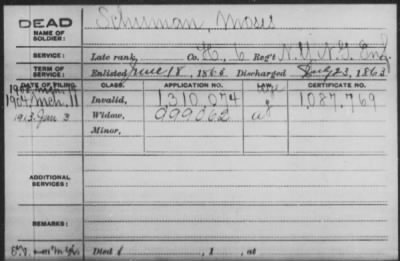 DEAD
NAME OF SOLDIER: Schuman, Moses
SERVICE: Late rank, Co. H, 6 Reg't N.Y. N.G. Inf.
TERM OF SERVICE: Enlisted June 18, 1863 Discharged July 23, 1863
DATE OF FILING. CLASS. APPLICATION NO. LAW. CERTIFICATE NO.
1904 Mch. 11 Invalid, 1,310,074 1,087,769
1913 Jan 3 Widow, 999,062
Minor,
ADDITIONAL SERVICES:
REMARKS:
Died , 1 , at